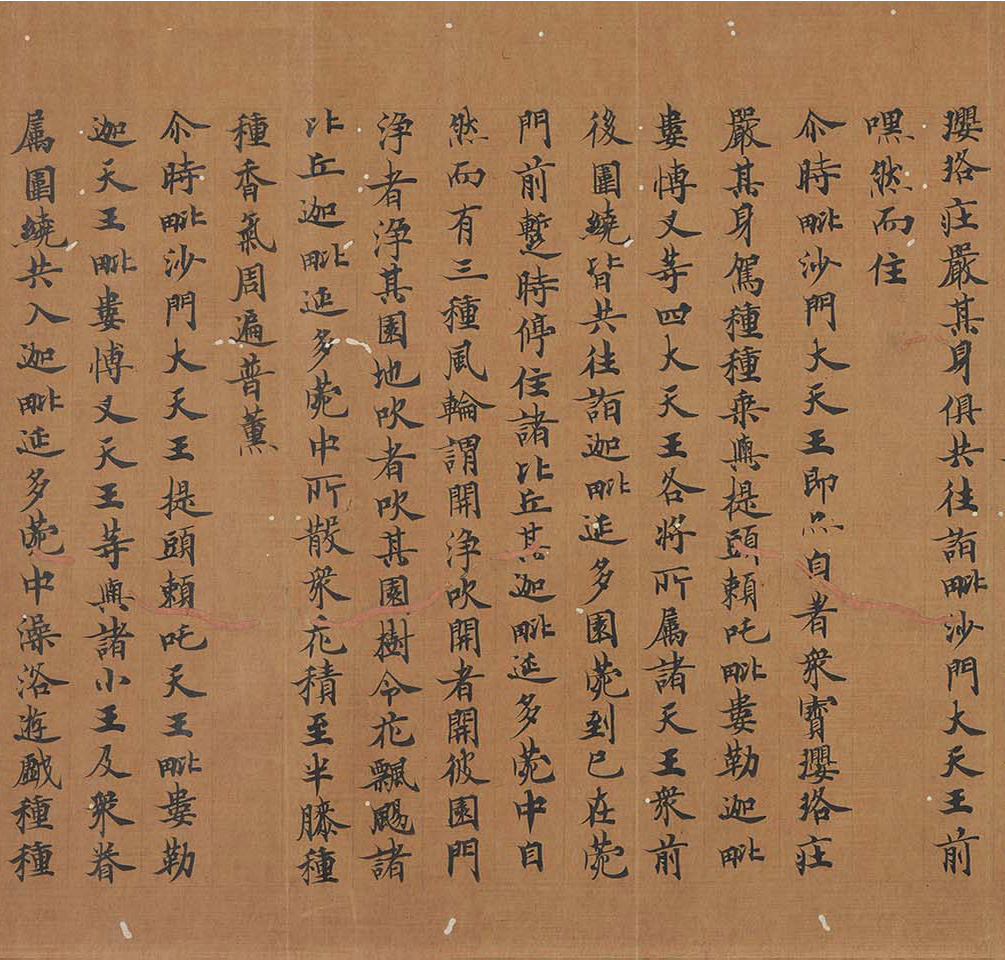 瓔珞庄嚴其身俱共往詣毗沙門大天王前
嘿然而住
尒時毗沙門大天王即亦自著衆寶瓔珞庄
嚴其身駕種種乘與提頭賴吒毗婁勒迦毗
婁愽叉等四大天王各將所属諸天王衆前
後圍繞皆共往詣迦毗延多園苑到已在苑
門前蹔時停住諸比丘其迦毗延多苑中自
然而有三種風輪謂開浄吹開者開彼園門
浄者浄其園地吹者吹其園樹令花飄颺諸
比丘迦毗延多苑中所散衆花積至半膝種
種香氣周遍普薰
尒時毗沙門大天王提頭賴吒天王毗婁勒
迦天王毗婁愽叉天王等與諸小王及衆眷
属圍繞共入迦毗延多苑中澡浴遊戲種種